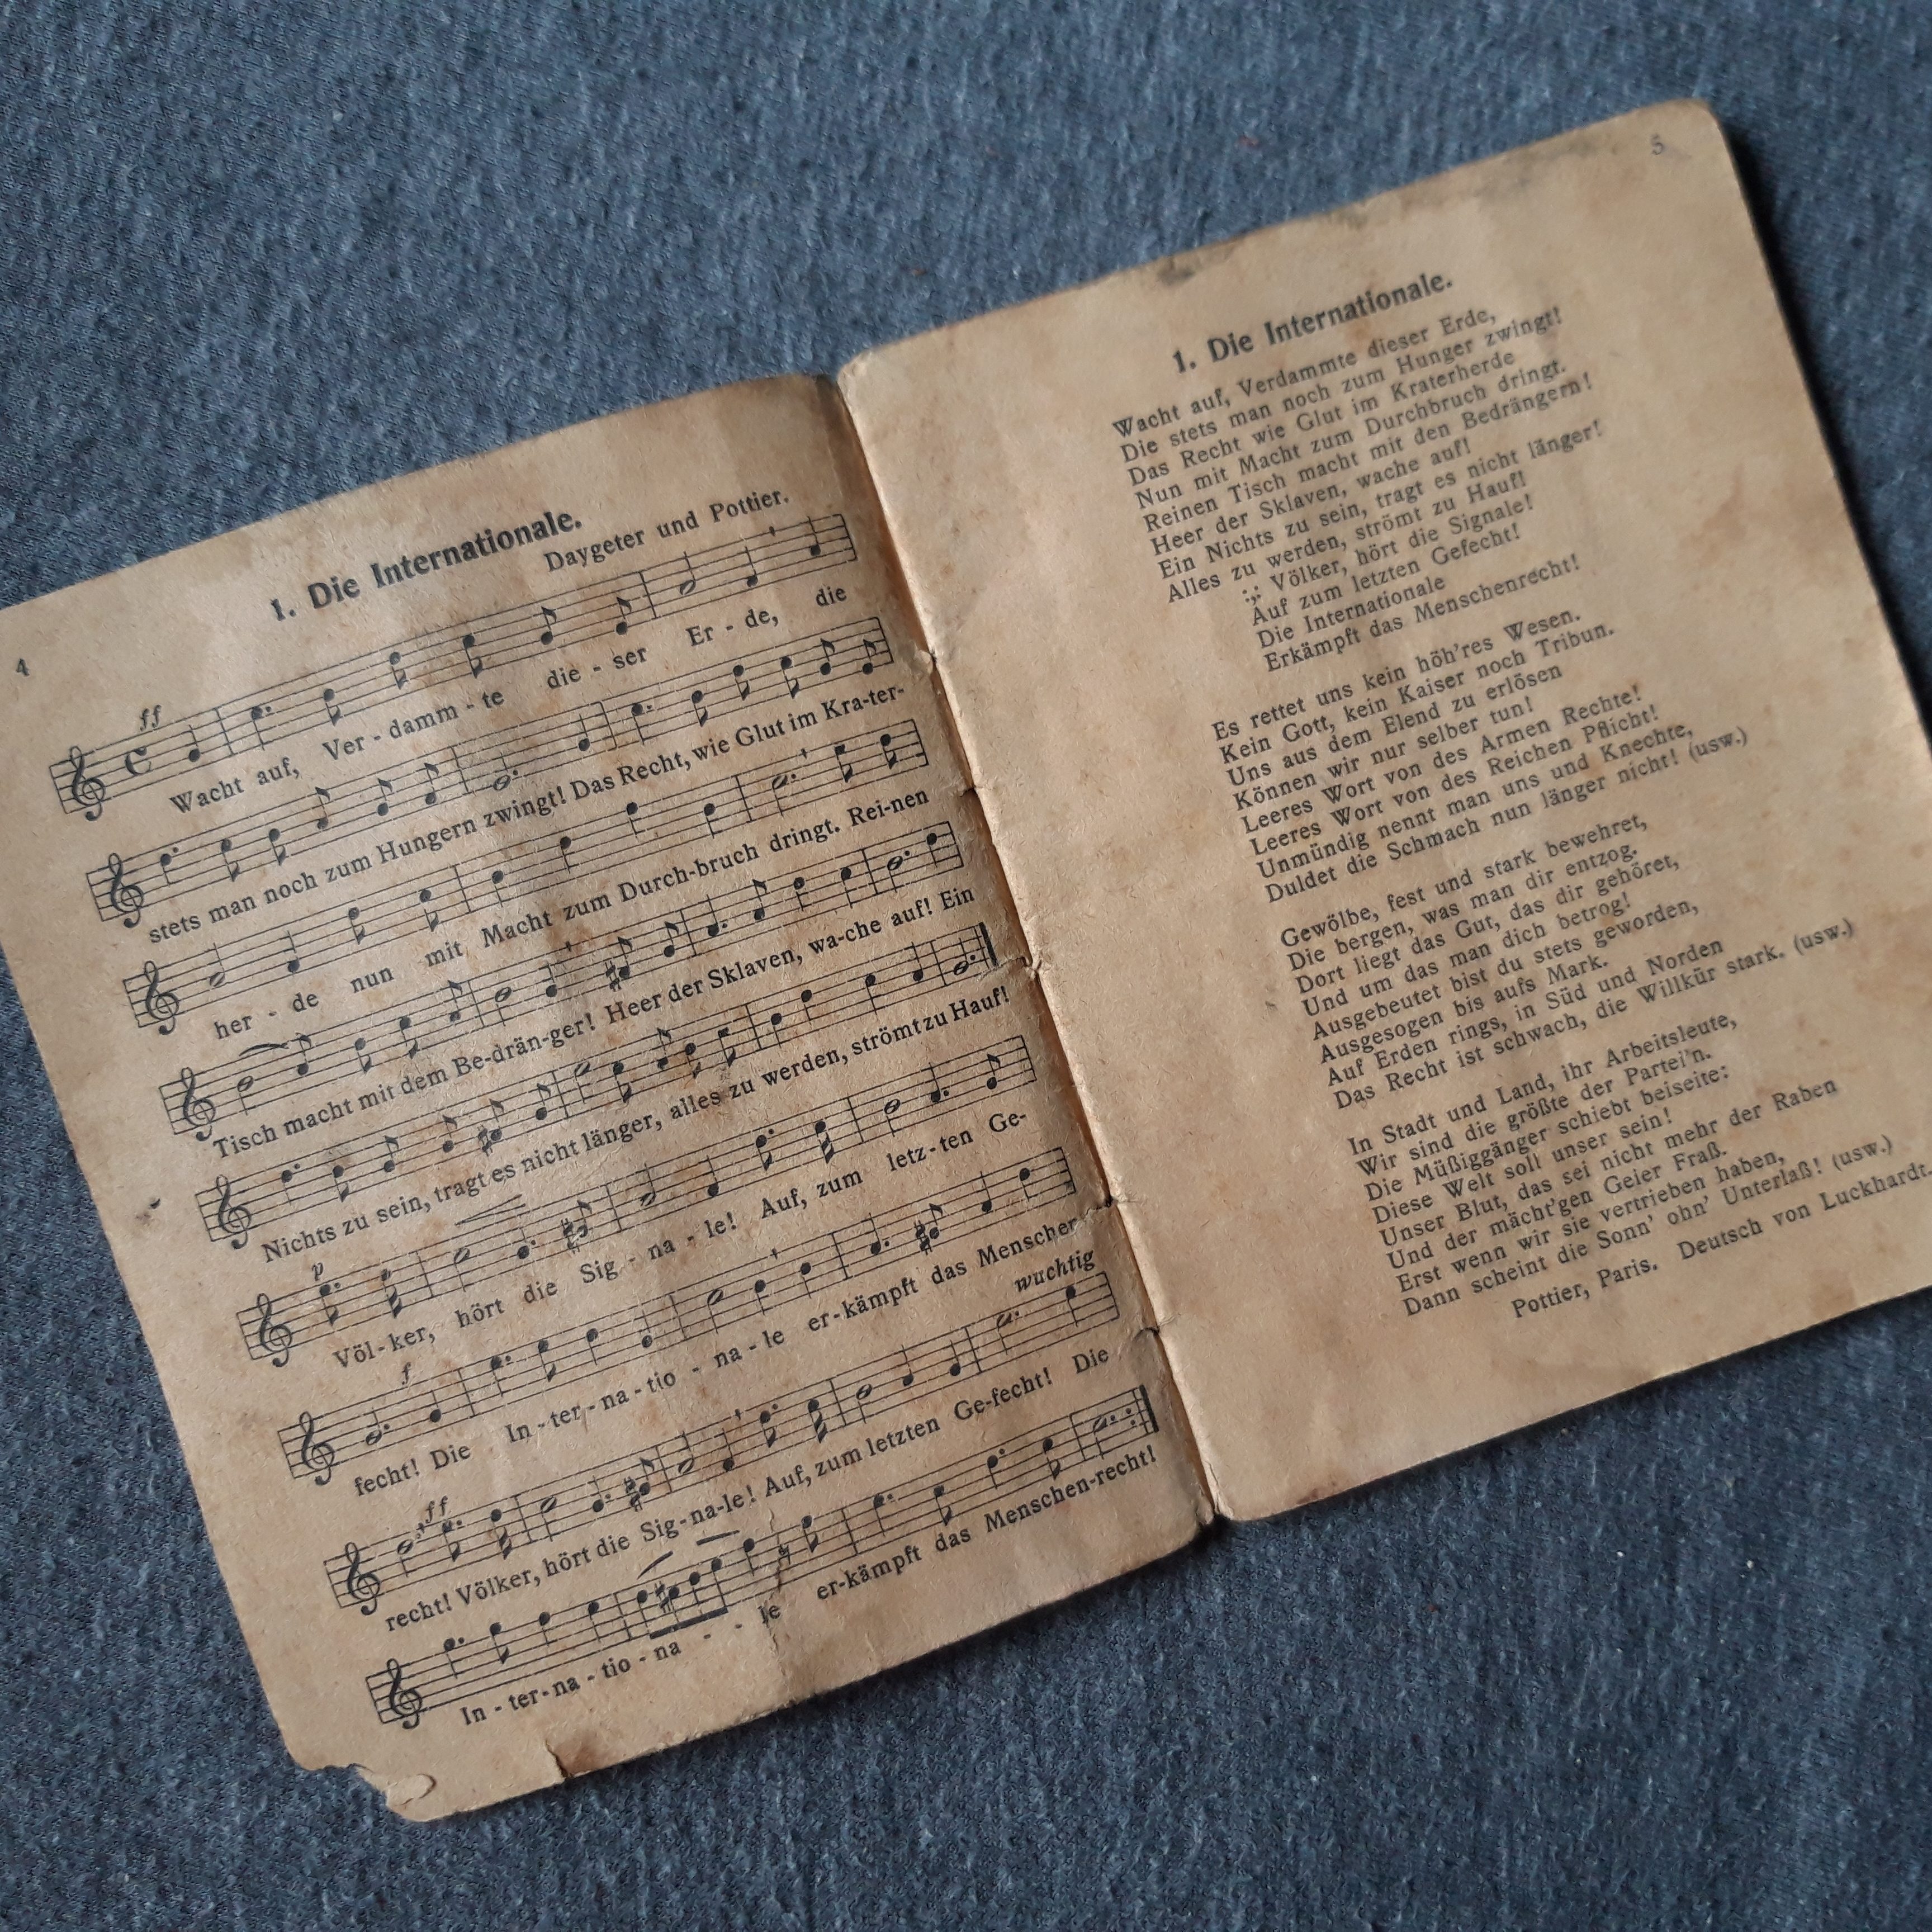 4
1. Die Internationale.
Daygeter und Pottier.
ff
Wacht auf, Ver - damm - te die - ser Er - de, die
stets man noch zum Hungern zwingt! Das Recht, wie Glut im Kra-ter-
her - de nun mit Macht zum Durch-bruch dringt. Rei-nen
Tisch macht mit dem Be-drän-ger! Heer der Sklaven, wa-che auf! Ein
Nichts zu sein, tragt es nicht länger, alles zu werden, strömt zu Hauf!
p
Völ-ker, hört die Sig - na - le! Auf, zum letz-ten Ge-
f
fecht! Die In-ter-na-tio - na-le er-kämpft das Menschen
wuchtig
ff
recht! Völker, hört die Sig-na-le! Auf, zum letzten Ge-fecht! Die
In - ter-na - tio - na - - le er-kämpft das Menschen-recht!
5
1. Die Internationale.
Wacht auf, Verdammte dieser Erde,
Die stets man noch zum Hunger zwingt!
Das Recht wie Glut im Kraterherde
Nun mit Macht zum Durchbruch dringt.
Reinen Tisch macht mit den Bedrängern!
Heer der Sklaven, wache auf!
Ein Nichts zu sein, tragt es nicht länger!
Alles zu werden, strömt zu Hauf!
:,: Völker, hört die Signale!
Auf zum letzten Gefecht!
Die Internationale
Erkämpft das Menschenrecht!
Es rettet uns kein höh'res Wesen.
Kein Gott, kein Kaiser noch Tribun.
Uns aus dem Elend zu erlösen
Können wir nur selber tun!
Leeres Wort von des Armen Rechte!
Leeres Wort von des Reichen Pflicht!
Unmündig nennt man uns und Knechte,
Duldet die Schmach nun länger nicht! (usw.)
Gewölbe, fest und stark bewehret,
Die bergen, was man dir entzog.
Dort liegt das Gut, das dir gehöret,
Und um das man dich betrog!
Ausgebeutet bist du stets geworden,
Ausgesogen bis aufs Mark.
Auf Erden rings, in Süd und Norden
Das Recht ist schwach, die Willkür stark. (usw.)
In Stadt und Land, ihr Arbeitsleute,
Wir sind die größte der Partei'n.
Die Müßiggänger schiebt beiseite:
Diese Welt soll unser sein!
Unser Blut, das sei nicht mehr der Raben
Und der mächt'gen Geier Fraß.
Erst wenn wir sie vertrieben haben,
Dann scheint die Sonn' ohn' Unterlaß! (usw.)
Pottier, Paris. Deutsch von Luckhardt.